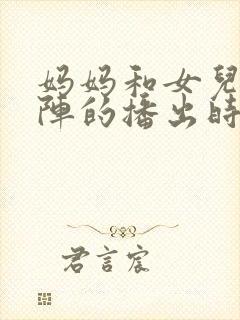 妈妈和女兒
陣的播出時
君言宸